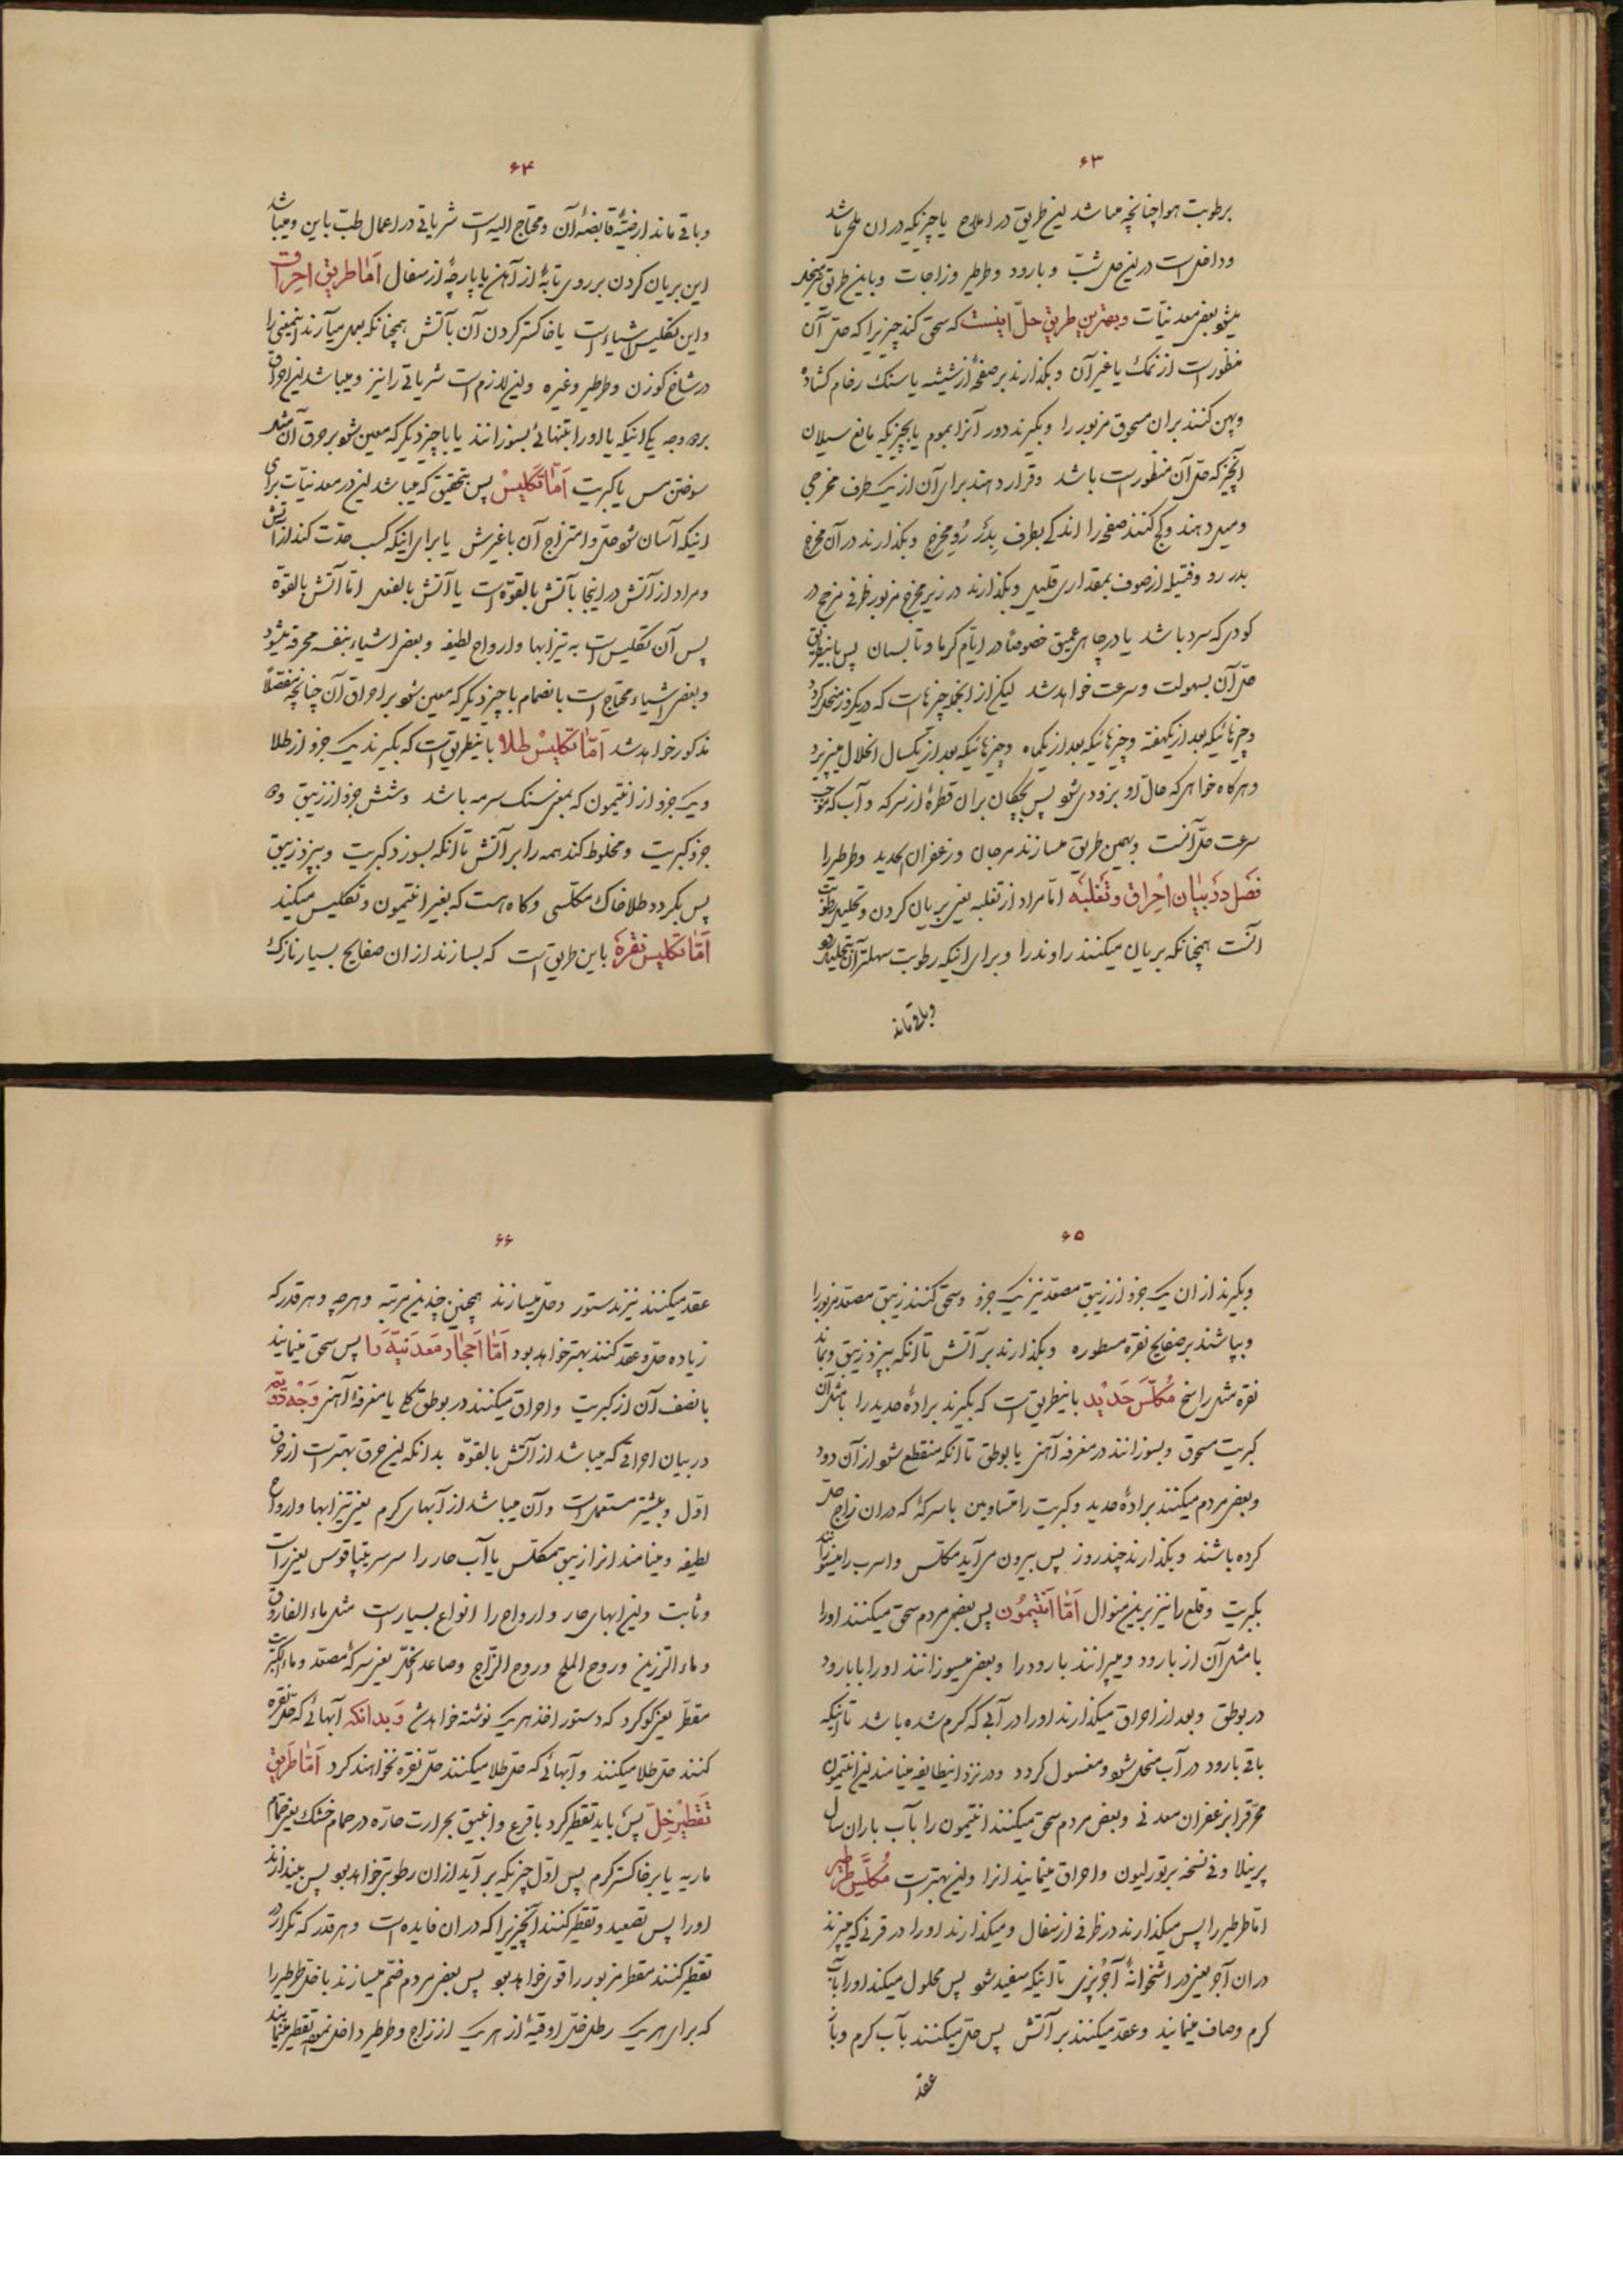 ۶۳
برطوبت هوا چنانچه میباشد این طریق در املاح یا چیزیکه در ان ملح باشد
و داخل است درین حل شبّ و بارود و طرطیر و زاجات و باین طریق منحل
میشود بعض معدنیات و بهترین طریق حل اینست که سحق کند چیزیرا که حل آن
منظور است از نمک یا غیر آن و بگذارند بر صفحهٔ از شیشه یا سنک رخام کشاده
و پهن کنند بران مسحوق مزبور را و بگیرند دور آنرا بموم یا بچیزیکه مانع سیلان
آنچیز که حل آن منظور است باشد و قرار دهند برای آن از یک طرف مخرجی
و میل دهند و کج کنند صفحه را اندکی بطرف بدر رو مخرج و بگذارند در آن مخرج
بدر رو و فتیله از صوف بمقداری قلیل و بگذارند در زیر مخرج مزبور ظرفی مزجج در
کودی که سرد باشد یا در چاهی عمیق خصوصاً در ایام کرما و تابستان پس باینطریق
حل آن بسهولت و سرعت خواهد شد لیکن از انجمله چیزهاست که در یکروز منحل کردد
و چیزهائیکه بعد از یکهفته و چیزهائیکه بعد از یکماه و چیزهائیکه بعد از یکسال انحلال میپزیرد
و هرکاه خواهی که حال او بزودی شود پس بچکان بران قطرهٔ از سرکه و آب که موجب
سرعت حل آنست و بهمین طریق میسازند مرجان و زعفران الحدید و طرطیر را
فصل در بیان احراق و تقلیه اما مراد از تقلیه یعنی بریان کردن و تحلیل رطوبت
آنست همچنانکه بریان میکنند راوند را و برای اینکه رطوبت سهلتر آن بتحلیل رود
و باقی ماند
۶۴
و باقی ماند ارضیّهٔ قابضهٔ آن و محتاج الیه است شریاقی در اعمال طب باین و میباشد
این بریان کردن بر روی تابهٔ از آهن یا پارچهٔ از سفال اما طریق احراق
و این تکلیس اشیاء است یا خاکستر کردن آن بآتش همچنانکه بعمل میآرند اینمعنی را
در شاخ کوزن و طرطیر و غیره و این لازم است شریاقی را نیز و میباشد این احراق
بر دو وجه یکی اینکه یا او را بتنهائی بسوزانند یا با چیز دیکر که معین شود بر حرق آن مثل
سوختن مس با کبریت اما تکلیس پس بتحقیق که میباشد این در معدنیات برای
اینکه آسان شود حل و امتزاج آن با غیرش یا برای اینکه کسب حدت کند از آتش
و مراد از آتش در اینجا بآتش بالقوه است یا آتش بالفعل اما آتش بالقوه
پس آن تکلیس است به تیزابها و ارواح لطیفه و بعض اشیاء بنفسه محرقه میشود
و بعض اشیاء محتاج است بانضمام با چیز دیکر که معین شود بر احراق آن چنانچه مفصلاً
مذکور خواهد شد اما تکلیس طلا باینطریق است که بگیرند یک جزو از طلا
و یک جزو از انتیمون که بمعنی سنک سرمه باشد و شش جزو از زیبق و دو
جزو کبریت و مخلوط کند همه را بر آتش تا آنکه بسوزد کبریت و بپرد زیبق
پس بکردد طلا خاک مکلسی و کاه هست که بغیر انتیمون و تکلیس میکنید
اما تکلیس نقره باین طریق است که بسازند از ان صفایح بسیار نازک
۶۵
و بگیرند از ان یک جزو از زیبق مصعد نیز یک جزو و سحق کنند زیبق مصعد مزبور را
و بپاشند بر صفایح نقره مسطوره و بگذارند بر آتش تا آنکه بپرد زیبق و بماند
نقره مثل راسخ مکلس حدید باینطریق است که بگیرند برادهٔ حدید را با مثل آن
کبریت مسحوق و بسوزانند در مغرفه آهنی یا بوطق تا آنکه منقطع شود از آن دود
و بعض مردم میکنند برادهٔ حدید و کبریت را متساویین با سرکهٔ که در ان زاج حل
کرده باشند و بگذارند چند روز پس بیرون میآید مکلس و اسرب را میسوزانند
بکبریت و قلع را نیز برین منوال اما انتیمون پس بعض مردم سحق میکنند او را
با مثل آن از بارود و میپرانند بارود را و بعض میسوزانند او را با بارود
در بوطق و بعد از احراق میگذارند او را در آبی که کرم شده باشد تا اینکه
باقی بارود در آب منحل شود و مغسول کردد و در نزد اینطایفه مینامند این انتیمون
محرق را بزعفران معدنی و بعض مردم سحق میکنند انتیمون را بآب باران سال
پرینلا و فی نسخه برتورلیون و احراق مینمایند انرا و این بهتر است مکلس طرطیر
اما طرطیر را پس میگذارند در ظرفی از سفال و میگذارند او را در قرنی که میپزند
در ان آجر یعنی در اشخوانهٔ آجر پزی تا اینکه سفید شود پس محلول میکند او را بآب
کرم و صاف مینمایند و عقد میکنند بر آتش پس حل میکنند بآب کرم و باز
عقد
۶۶
عقد میکنند نیز بدستور و حل میسازند همچنین چندین مرتبه و هرچه و هر قدر که
زیاده حل و عقد کنند بهتر خواهد بود اما احجار معدنیه را پس سحق مینمایند
با نصف آن از کبریت و احراق میکنند در بوطق کلی یا مغرفهٔ آهنی وجه دویم
در بیان احراقی که میباشد از آتش بالقوه بدانکه این حرق بهتر است از حرق
اول و بیشتر مستعمل است و آن میباشد از آبهای کرم یعنی تیزابها و ارواح
لطیفه و مینامند انرا زیبق مکلس یا آب حار را سرسریتپاقوس یعنی راست
و ثابت و این ابهای حار و ارواح را انواع بسیار است مثل ماء الفاروق
و ماء الرزین و روح الملح و روح الزاج و صاعد الخل یعنی سرکهٔ مصعد و ماء الکبریت
مقطر یعنی کوکرد که دستور اخذ هر یک نوشته خواهد شد و بدانکه آبهائی که حل نقره
کنند حل طلا میکنند و آبهائی که حل طلا میکنند حل نقره نخواهند کرد اما طریق
تقطیر خل پس باید تقطیر کرد با قرع و انبیق بحرارت حاره در حمام خشک یعنی حمام
ماریه یا بر خاکستر کرم پس اول چیزیکه بر آید از ان رطوبتی خواهد بود پس بیندازند
او را پس تصعید و تقطیر کنند آنچیزیرا که در ان فایده است و هر قدر که تکرار در
تقطیر کنند مقطر مزبور را قوی خواهد بود پس بعض مردم ضم میسازند با خل طرطیر را
که برای هر یک رطل خل اوقیهٔ از هر یک از زاج و طرطیر داخل نموده تقطیر مینمایند